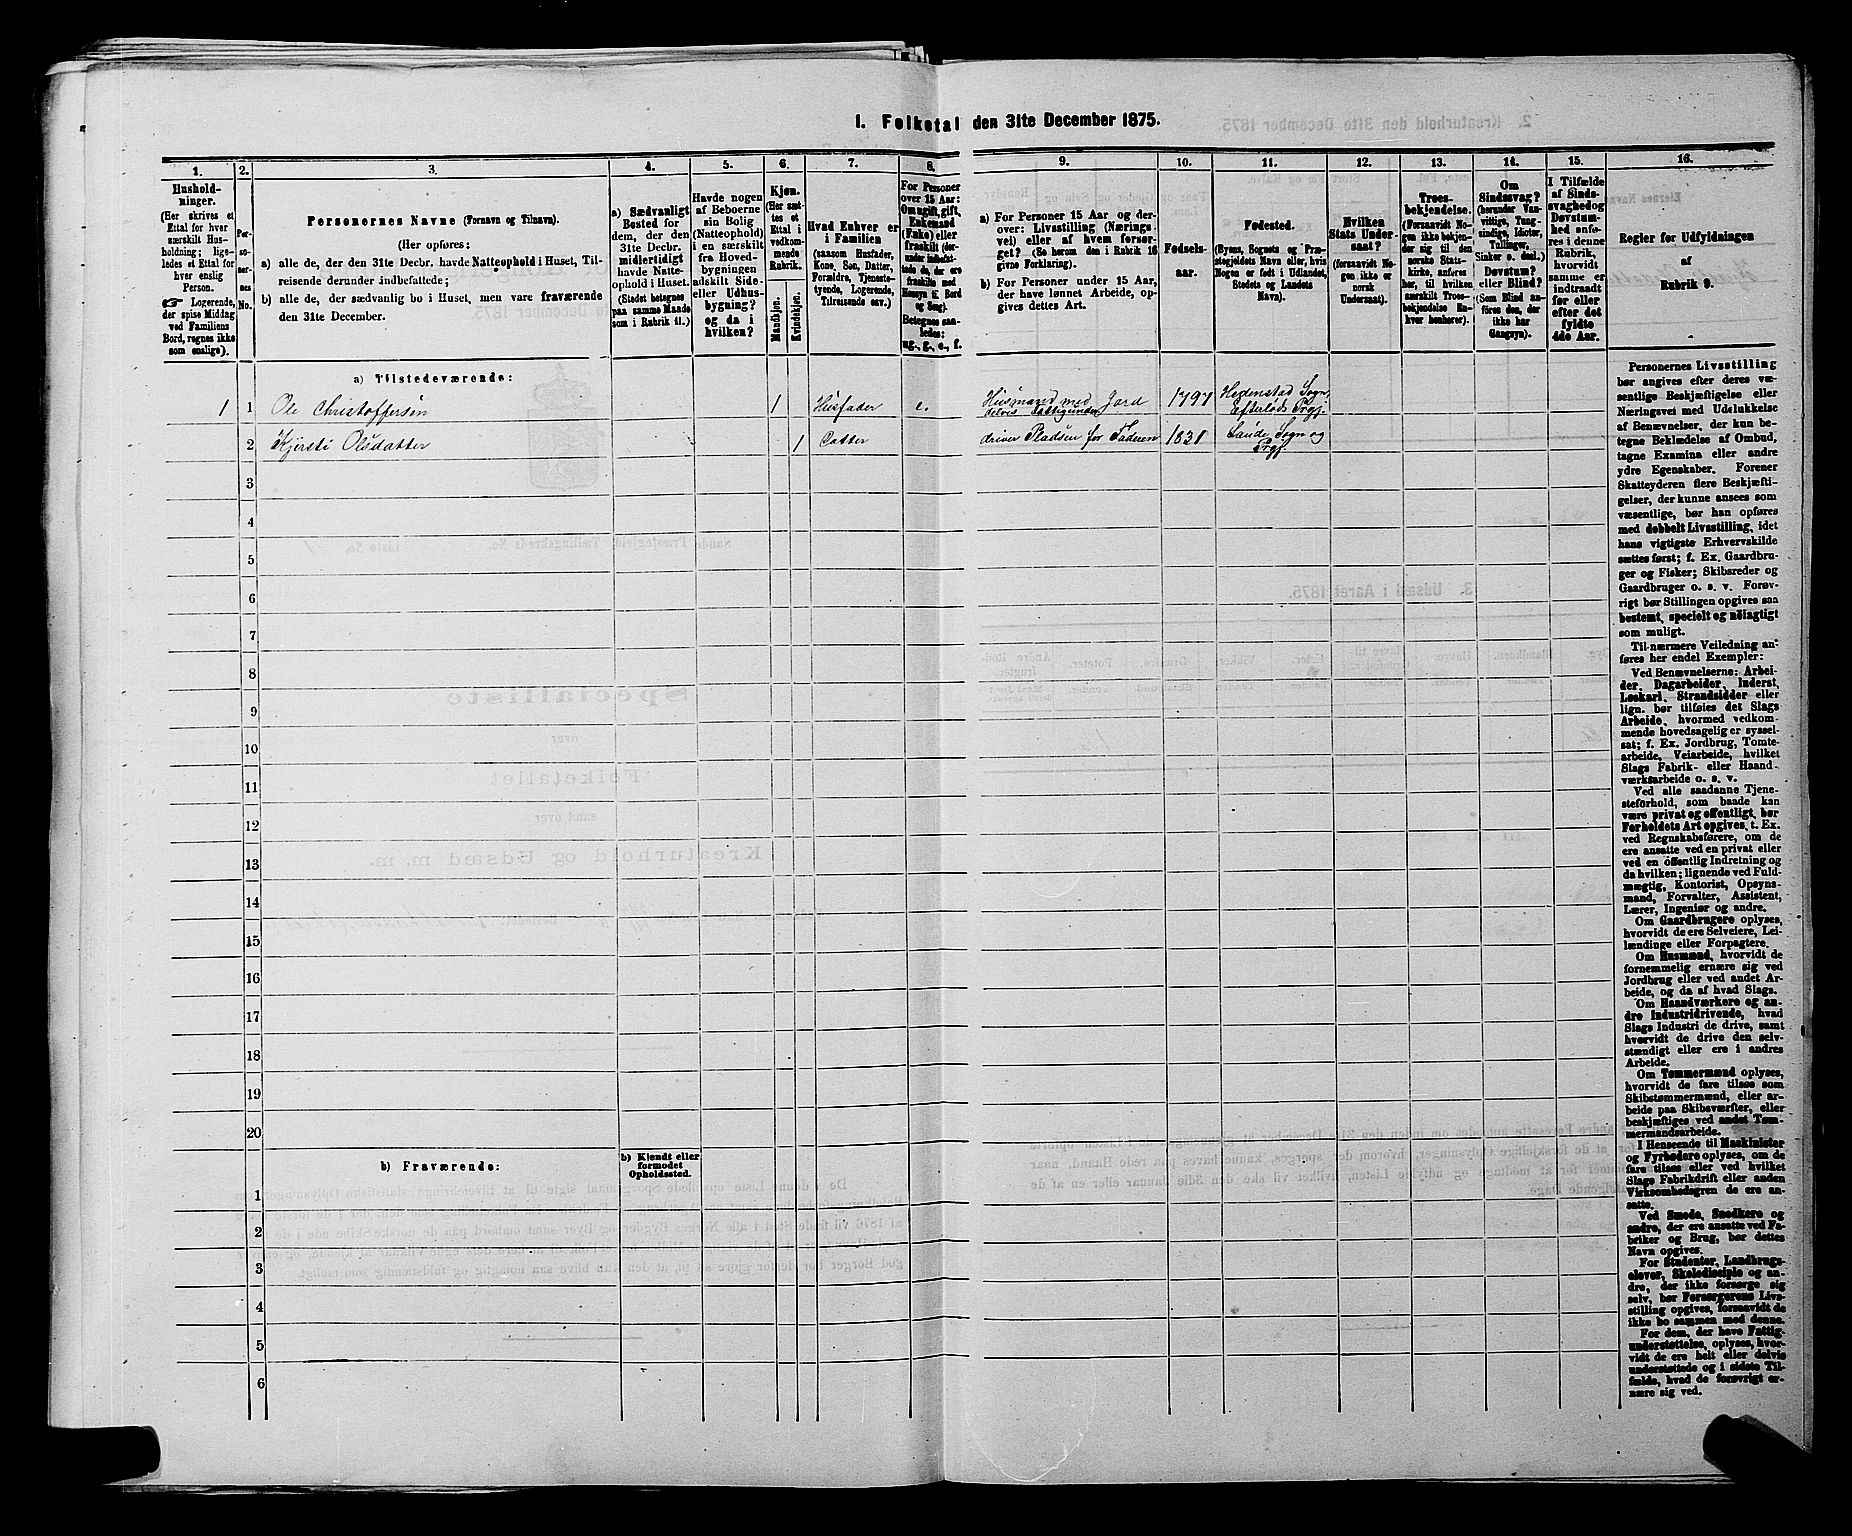 I. Folketal den 31te December 1875.
1.
Hushold-
ninger.
(Her skrives et
Ettal for hver
særskilt Hus-
holdning; lige-
ledes et Ettal for
hver enslig
Person.
☞ Logerende,
der spise Middag
ved Familiens
Bord, regnes ikke
som enslige).
2.
Per-
so-
ner-
nes
No.
3.
Personernes Navne (Fornavn og Tilnavn).
(Her opføres:
a) alle de, der den 31te Decbr. havde Natteophold i Huset, Til-
reisende derunder indbefattede;
b) alle de, der sædvanlig bo i Huset, men vare fraværende
den 31te December.
4.
a) Sædvanligt
Bosted for
dem, der den
31te Decbr.
midlertidigt
havde Natte-
ophold i Huset.
(Stedet betegnes
paa samme Maade
som i Rubrik 11.)
5.
Havde nogen
af Beboerne
sin Bolig
(Natteophold)
i en særskilt
fra Hoved-
bygningen
adskilt Side-
eller Udhus-
bygning?
og da i
hvilken?
6.
Kjøn.
(Her sæt-
tes et
Ettal i
vedkom-
mende
Rubrik.
Mandkjøn.
Kvindekjøn.
7.
Hvad Enhver er
i Familien
(saasom Husfader,
Kone, Søn, Datter,
Forældre, Tjeneste-
tyende, Logerende,
Tilreisende osv.)
8.
For Personer
over 15 Aar:
Om ugift, gift,
Enkemand
(Enke) eller
fraskilt
Betegnes saa-
ledes:
ug., g., e., f.
9.
a) For Personer 15 Aar og der-
over: Livsstilling (Nærings-
vei) eller af hvem forsør-
get? (Se herom den i Rubrik 16
givne Forklaring).
b) For Personer under 15 Aar,
der have lønnet Arbeide, op-
gives dettes Art.
10.
Fødsels-
aar.
11.
Fødested.
(Byens, Sognets og Præ-
stegjeldets Navn eller, hvis
Nogen er født i Udlandet,
Stedets og Landets
Navn).
12.
Hvilken
Stats Under-
saat?
(forsaavidt No-
gen ikke er
norsk
Undersaat).
13.
Troes-
bekjendelse.
(Forsaavidt No-
gen ikke bekjen-
der sig til den
norske Stats-
kirke, anføres
her, til hvilken
særskilt Troes-
bekjendelse En-
hver henhører).
14.
Om
Sindssvag?
(herunder Van-
vittige, Tung-
sindige, Idioter,
Tullinger,
Sinker o. desl.)
Døvstum?
eller Blind?
(Som Blind an-
føres den, der
ikke har
Gangsyn).
15.
I Tilfælde
af Sinds-
svaghed og
Døvstum-
hed anfø-
res i denne
Rubrik,
hvorvidt
samme er
indtraadt
før eller
efter det
fyldte
4de Aar.
16.
Regler for Udfyldningen
af
Rubrik 9.
a) Tilstedeværende:
1 1 Ole Christoffersen 1 Husfader e. Husmand med Jord 1797 Hedenstad Sogn,
delvis fattigunder Efterløds Prgj.
2 Kjersti Olsdatter 1 Datter driver Pladsen for Faderen 1831 Sande Sogn og
Prgj.
3
4
5
6
7
8
9
10
11
12
13
14
15
16
17
18
19
20
b) Fraværende:
b) Kjendt eller
formodet
Opholdssted.
1
2
3
4
5
6
Personernes Livsstilling
bør angives efter deres væ-
sentlige Beskjæftigelse eller
Næringsvei med Udelukkelse
af Benævnelser, der kun be-
tegne Beklædelse af Ombud,
tagne Examina eller andre
ydre Egenskaber. Forener
Skatteyderen flere Beskjæfti-
gelser, der kunne ansees som
væsentlige, bør han opføres
med dobbelt Livsstilling, idet
hans vigtigste Erhvervskilde
sættes først; f. Ex. Gaardbru-
ger og Fisker; Skibsreder og
Gaardbruger o. s. v. Forøv-
rigt bør Stillingen opgives saa
bestemt, specielt og nøiagtigt
som muligt.
Til nærmere Veiledning an-
føres her endel Exempler:
Ved Benævnelserne: Arbei-
der, Dagarbeider, Inderst,
Løskarl, Strandsidder eller
lign. bør tilføies det Slags
Arbeide, hvormed vedkom-
mende hovedsagelig er syssel-
sat; f. Ex. Jordbrug, Tomte-
arbeide, Veiarbeide, hvilket
Slags Fabrik- eller Haand-
værksarbeide o. s. v.
Ved alle saadanne Tjene-
steforhold, som baade kan
være privat og offentligt, bør
Forholdets Art opgives, t. Ex.
ved Regnskabsførere, om de
ere ansatte ved en privat eller
ved en offentlig Indretning og
da hvilken; lignende ved Fuld-
mægtig, Kontorist, Opsyns-
mand, Forvalter, Assistent,
Lærer, Ingeniør og andre.
Om Gaardbrugere oplyses,
hvorvidt de ere Selveiere, Lei-
lændinge eller Forpagtere.
Om Husmænd, hvorvidt de
fornemmelig ernære sig ved
Jordbrug eller ved andet Ar-
beide, og da af hvad Slags.
Om Haandværkere og an-
dre Industridrivende, hvad
Slags Industri de drive, samt
hvorvidt de drive den selv-
stændigt eller ere i andres
Arbeide.
Om Tømmermænd oplyses,
hvorvidt de fare tilsøs som
Skibstømmermænd, eller ar-
beide paa Skibsværfter, eller
beskjæftiges ved andet Tøm-
mermandsarbeide.
I Henseende til Maskinister
og Fyrbødere oplyses, om de
fare tilsøs eller ved hvilket
Slags Fabrikdrift eller anden
Virksomhedsgren de ere an-
satte.
Ved Smede, Snedkere og
andre, der ere ansatte ved Fa-
briker og Brug, bør dettes
Navn opgives.
For Studenter, Landbrugs-
elever, Skoledisciple og an-
dre, der ikke forsørge sig
selv, bør Forsørgerens Livs-
stilling opgives, forsaavidt de
ikke bo sammen med denne.
For dem, der have Fattig-
understøttelse, oplyses, hvor-
vidt de ere helt eller delvis
understøttede og i sidste Til-
fælde, hvad de forøvrigt er-
nære sig ved.